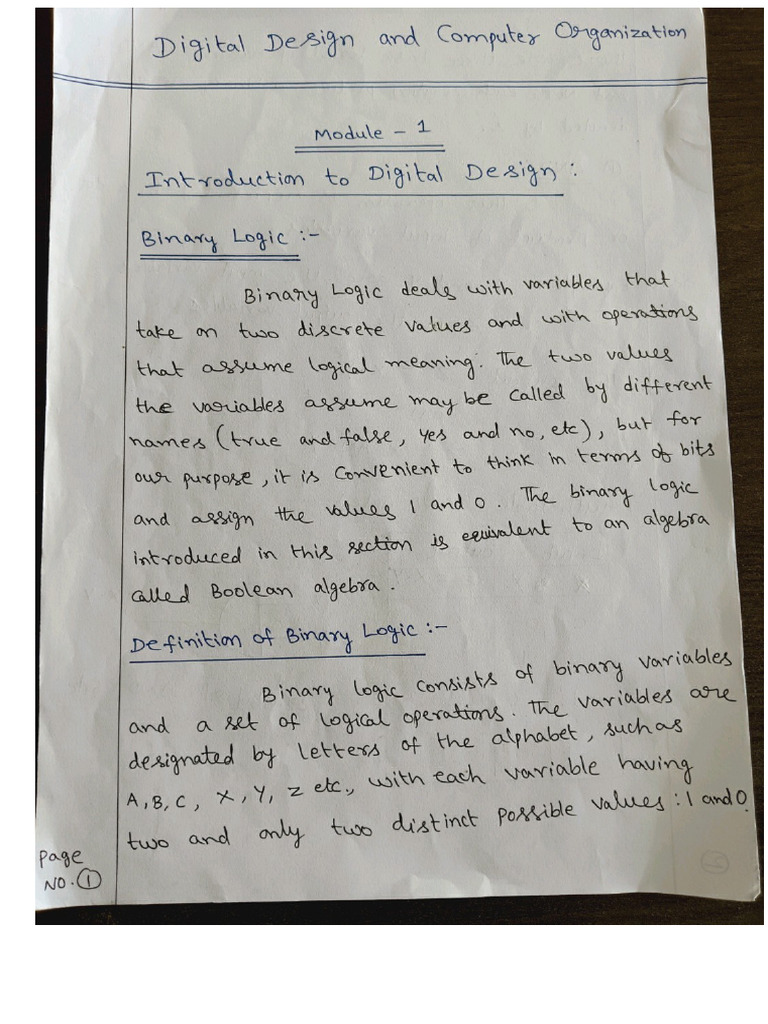 Digital Design and Computer Organization
Module - 1
Introduction to Digital Design :
Binary Logic :-
Binary Logic deals with variables that
take on two discrete values and with operations
that assume logical meaning. The two values
the variables assume may be called by different
names (true and false, yes and no, etc), but for
our purpose, it is convenient to think in terms of bits
and assign the values 1 and 0. The binary logic
introduced in this section is equivalent to an algebra
called Boolean algebra.
Definition of Binary Logic :-
Binary logic consists of binary variables
and a set of logical operations. The variables are
designated by letters of the alphabet, such as
A, B, C, X, Y, Z etc., with each variable having
two and only two distinct possible values : 1 and 0.
Page
No. 1